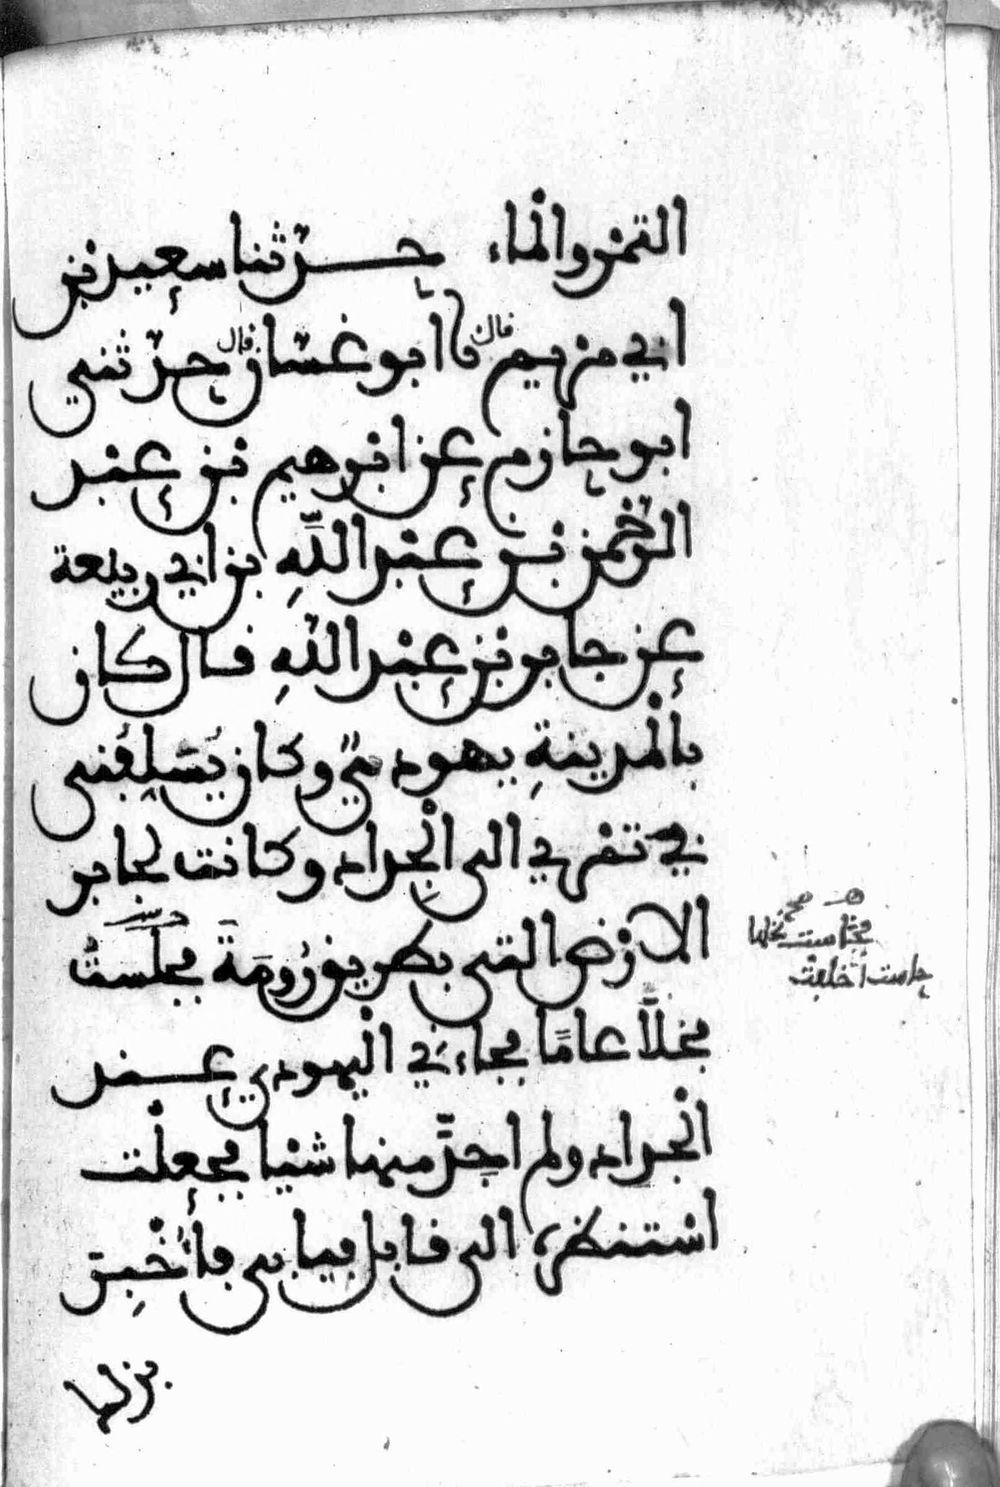 التمر والماء حدثنا سعيد بن
ابي مريم قال نا أبو غسان قال حدثني
ابو حازم عن ابرهيم بن عبد
الرحمن بن عبد اللَّهِ بن ابي ربيعة
عن جابر بن عبد اللهِ قال كان
بالْمدينةِ يهوديٌّ وكان يُسْلِفُني
في تمري الى الْجِداد وكانت لجابر
الارْض التي بطريق رُومَةَ فجلَسَتْ
فخلاَّ عامًا فجاءَني الْيهودي عند
الْجداد ولم اجدَّ منها شيْيا فجعلْت
اسْتنظره الى قابل فيابى فأُخْبِرَ
فخاست نخلها
جاست أخلفت
بذلها